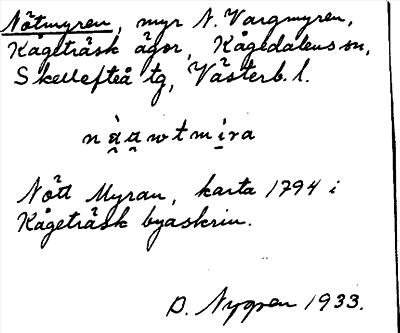 Nötmyren, myr N. Vargmyren,
Kågeträsk ägor, Kågedalens sn,
Skellefteå tg, Västerb. l.
nä̀a̤wtmi̤ra
Nött Myran, karta 1794 i
Kågeträsk byaskrin.
D. Nygren 1933.